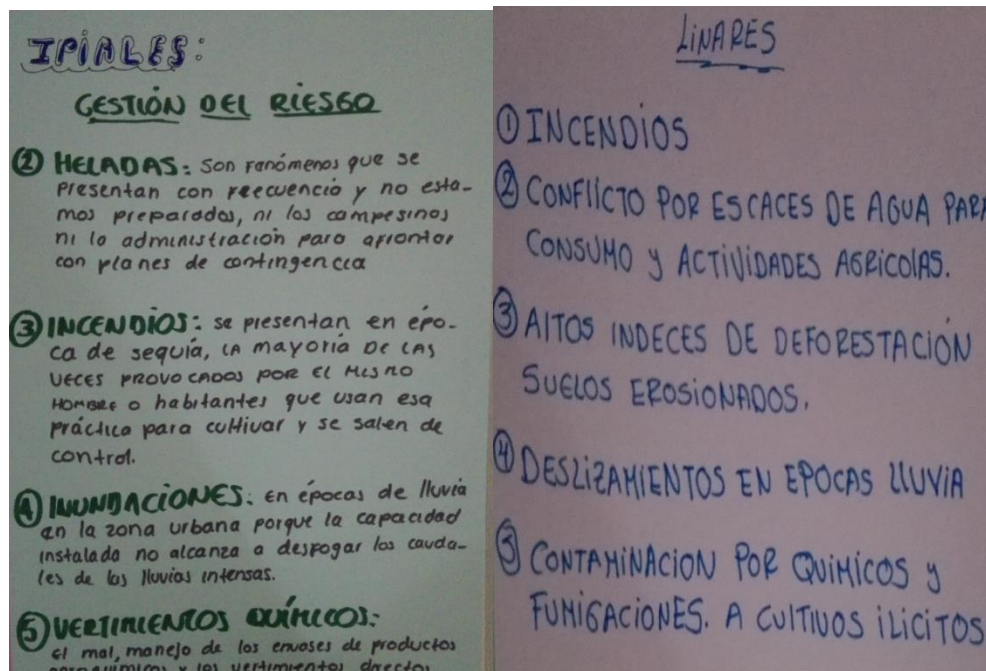 IPIALES:
GESTIÓN DEL RIESGO
② HELADAS: Son fenómenos que se
presentan con freecuencia y no esta-
mos preparados, ni los campesinos
ni la administración para afrontar
con planes de contingencia
③ INCENDIOS: se presentan en épo-
ca de sequía, LA mayoría DE LAS
VECES PROVOCADOS POR EL MISMO
HOMBRE o habitantes que usan esa
práctica para cultivar y se salen de
control.
④ INUNDACIONES: En épocas de lluvia
en la zona urbana porque la capacidad
instalada no alcanza a desfogar los cauda-
les de las lluvias intensas.
⑤ VERTIMIENTOS QUÍMICOS:
el mal, manejo de los envases de productos
y los vertimientos directos
LINARES
① INCENDIOS
② CONFLICTO POR ESCACES DE AGUA PARA
CONSUMO y ACTIVIDADES AGRICOLAS.
③ ALTOS INDECES DE DEFORESTACIÓN
SUELOS EROSIONADOS.
④ DESLIZAMIENTOS EN EPOCAS LLUVIA
⑤ CONTAMINACION POR QUIMICOS y
FUMIGACIONES. A CULTIVOS ILICITOS